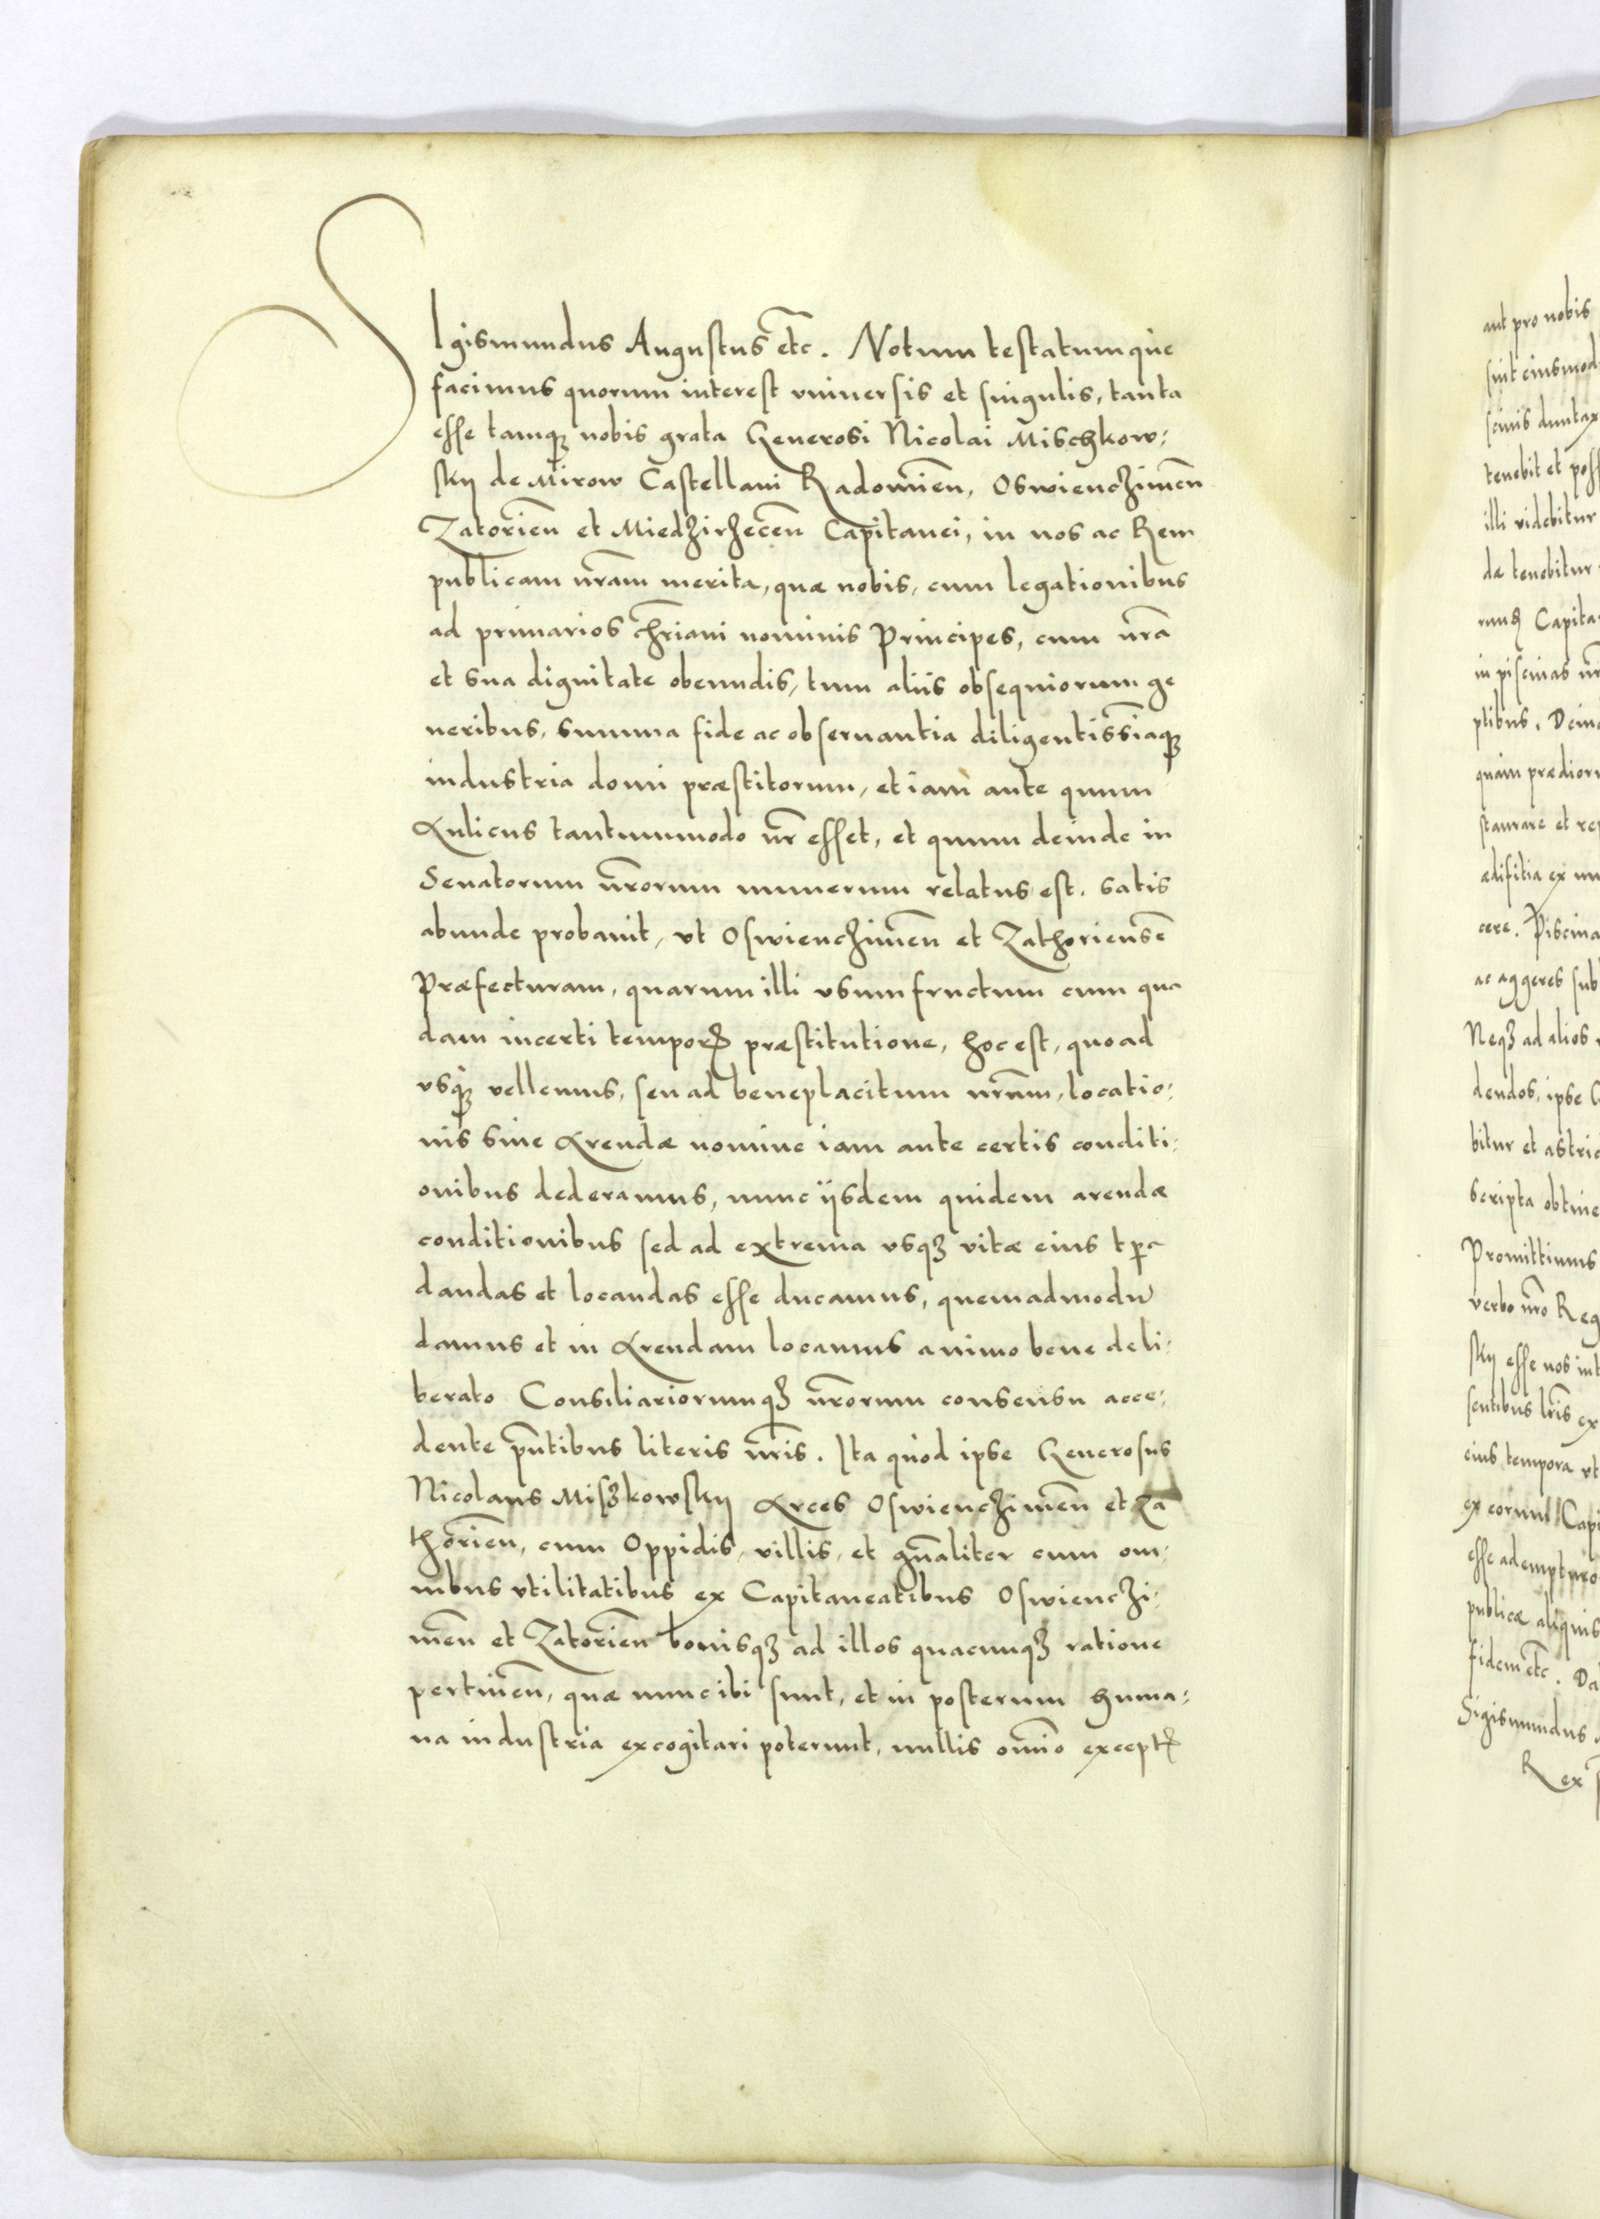 SIgismundus Augustus etc. Notum testatumque
facimus quorum interest vniuersis et singulis, tanta
esse tamqꝫ nobis grata Generosi Nicolai Mischkow:
skij de Mirow Castellani Radomien̄, Oswienczimen̄
Zatorien̄ et Miedzirzecen̄ Capitanei, in nos ac Rem
publicam nr̄am merita, quæ nobis, cum legationibus
ad primarios chr̄iani nominis Principes, cum nr̄a
et sua dignitate obeundis, tum aliis obsequiorum ge
neribus, summa fide ac obseruantia diligentissīaqꝫ
industria domi præstitorum, et iam ante quum
Aulicus tantummodo nr̄ esset, et quum deinde in
Senatorum nr̄orum numerum relatus est, satis
abunde probauit, vt Oswienczimen̄ et Zathoriensē
Præfecturam, quarum illi vsumfructum cum qua
dam incerti temporꝭ præstitutione, hoc est, quoad
vsqꝫ vellemus, seu ad beneplacitum nr̄um, locatio:
nis siue Arendæ nomine iam ante certis conditi:
onibus dederamus, nunc ijsdem quidem arendæ
conditionibus sed ad extrema vsqꝫ vitæ eius tp̄a
dandas et locandas esse ducamus, quemadmodū
damus et in Arendam locamus animo bene deli:
berato Consiliariorumqꝫ nr̄orum consensu acce:
dente pn̄tibus literis nr̄is. Ita quòd ipse Generosus
Nicolaus Miszkowskij Arces Oswienczimen̄ et Za
thorien̄, cum Oppidis, villis, et gn̄aliter cum om:
nibus vtilitatibus ex Capitaneatibus Oswienczi:
men̄ et Zatorien̄ bonisqꝫ ad illos quacunqꝫ ratione
pertinen̄, quæ nunc ibi sunt, et in posterum huma:
na industria excogitari poterunt, nullis om̄io exceptꝭ
aut pro nobis
tenebit et poss
illi videbitur
dæ tenebitur
in piscinas nr̄
ptibus. Dein
quàm prædioru
staurare et re
ædifitia ex
cere. Piscina
ac aggeres sub
Neqꝫ ad alios
dendos, ipse G
bitur et astric
scripta obtine
Promittimus
verbo nr̄o Reg
skij esse nos int
sentibus lr̄is ex
eius tempora vt
ex eorum Capi
esse adempturo
publicæ aliquis
fidem etc. Da
Sigismundus
Rex